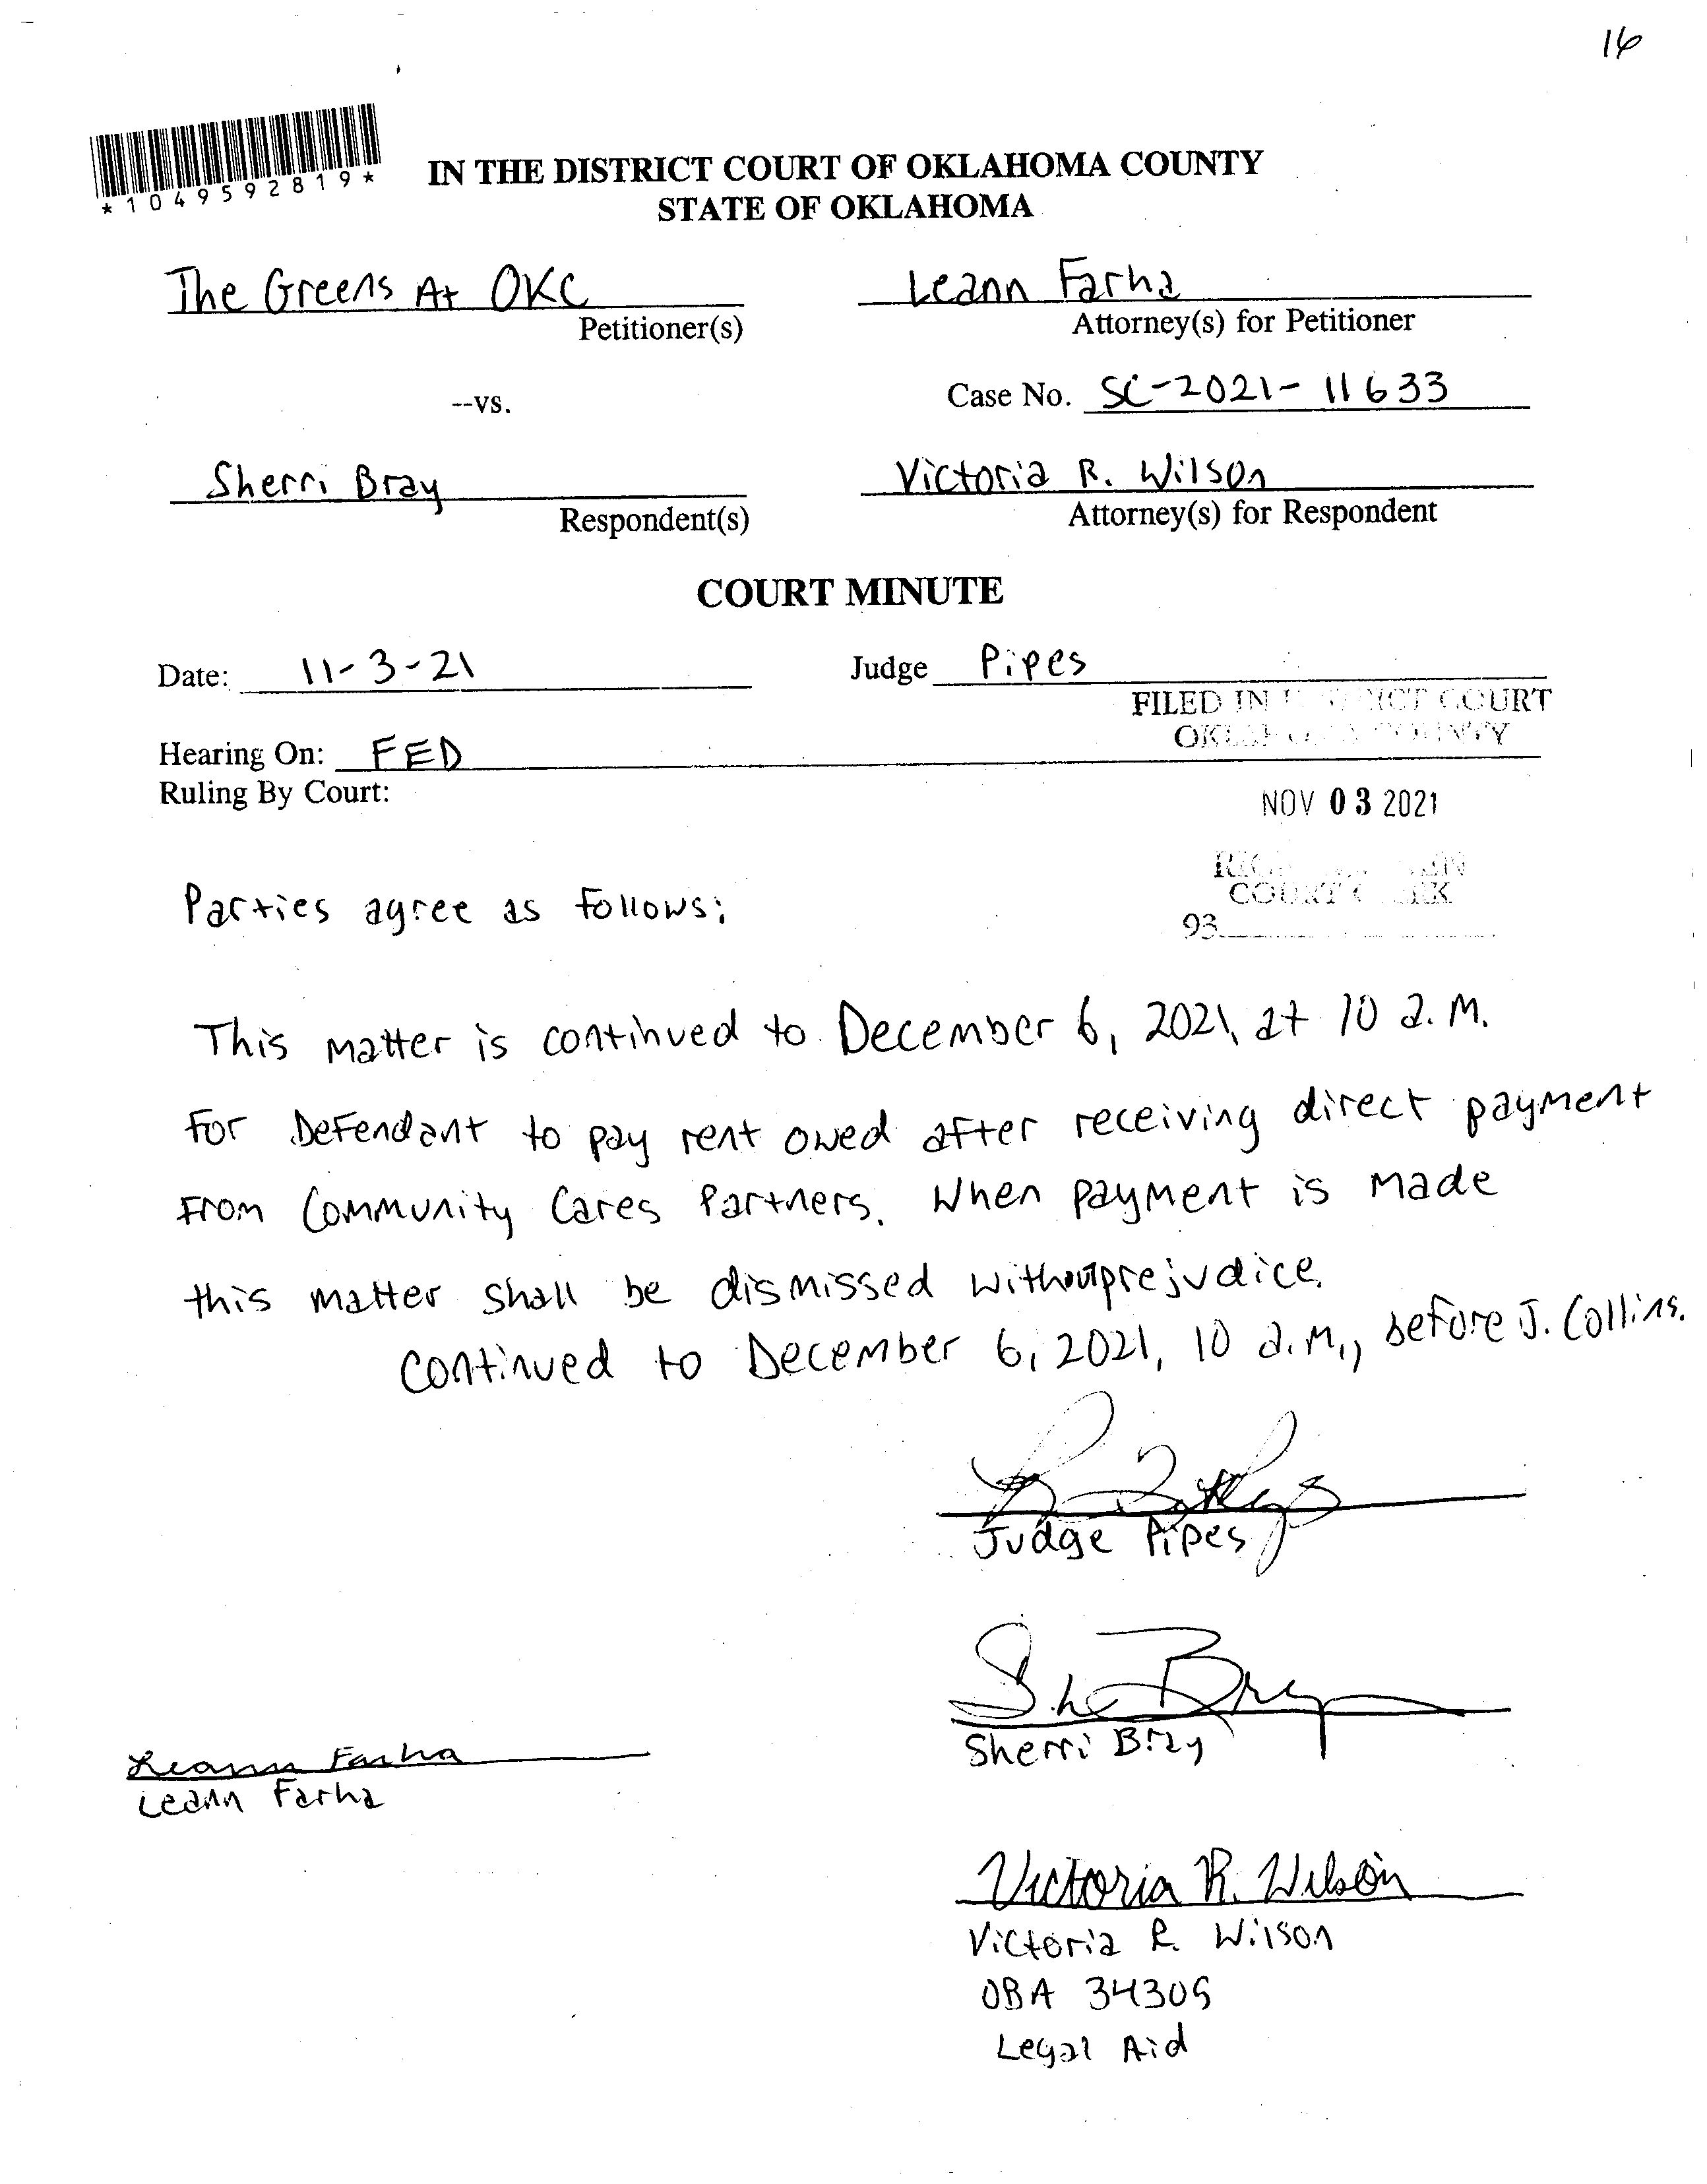 16
*1049592819*
IN THE DISTRICT COURT OF OKLAHOMA COUNTY
STATE OF OKLAHOMA
The Greens At OKC
Petitioner(s)
Leann Farha
Attorney(s) for Petitioner
--vs.
Case No. SC-2021-11633
Sherri Bray
Respondent(s)
Victoria R. Wilson
Attorney(s) for Respondent
COURT MINUTE
Date: 11-3-21
Judge Pipes
FILED IN DISTRICT COURT
OKLAHOMA COUNTY
Hearing On: FED
Ruling By Court:
NOV 03 2021
COURT CLERK
93
Parties agree as follows:
This matter is continued to December 6, 2021, at 10 a.m.
for Defendant to pay rent owed after receiving direct payment
from Community Cares Partners. When payment is made
this matter shall be dismissed without prejudice.
Continued to December 6, 2021, 10 a.m., before J. Collins.
Judge Pipes
She Bray
Sherri Bray
Leann Farha
Leann Farha
Victoria R. Wilson
Victoria R. Wilson
OBA 34305
Legal Aid